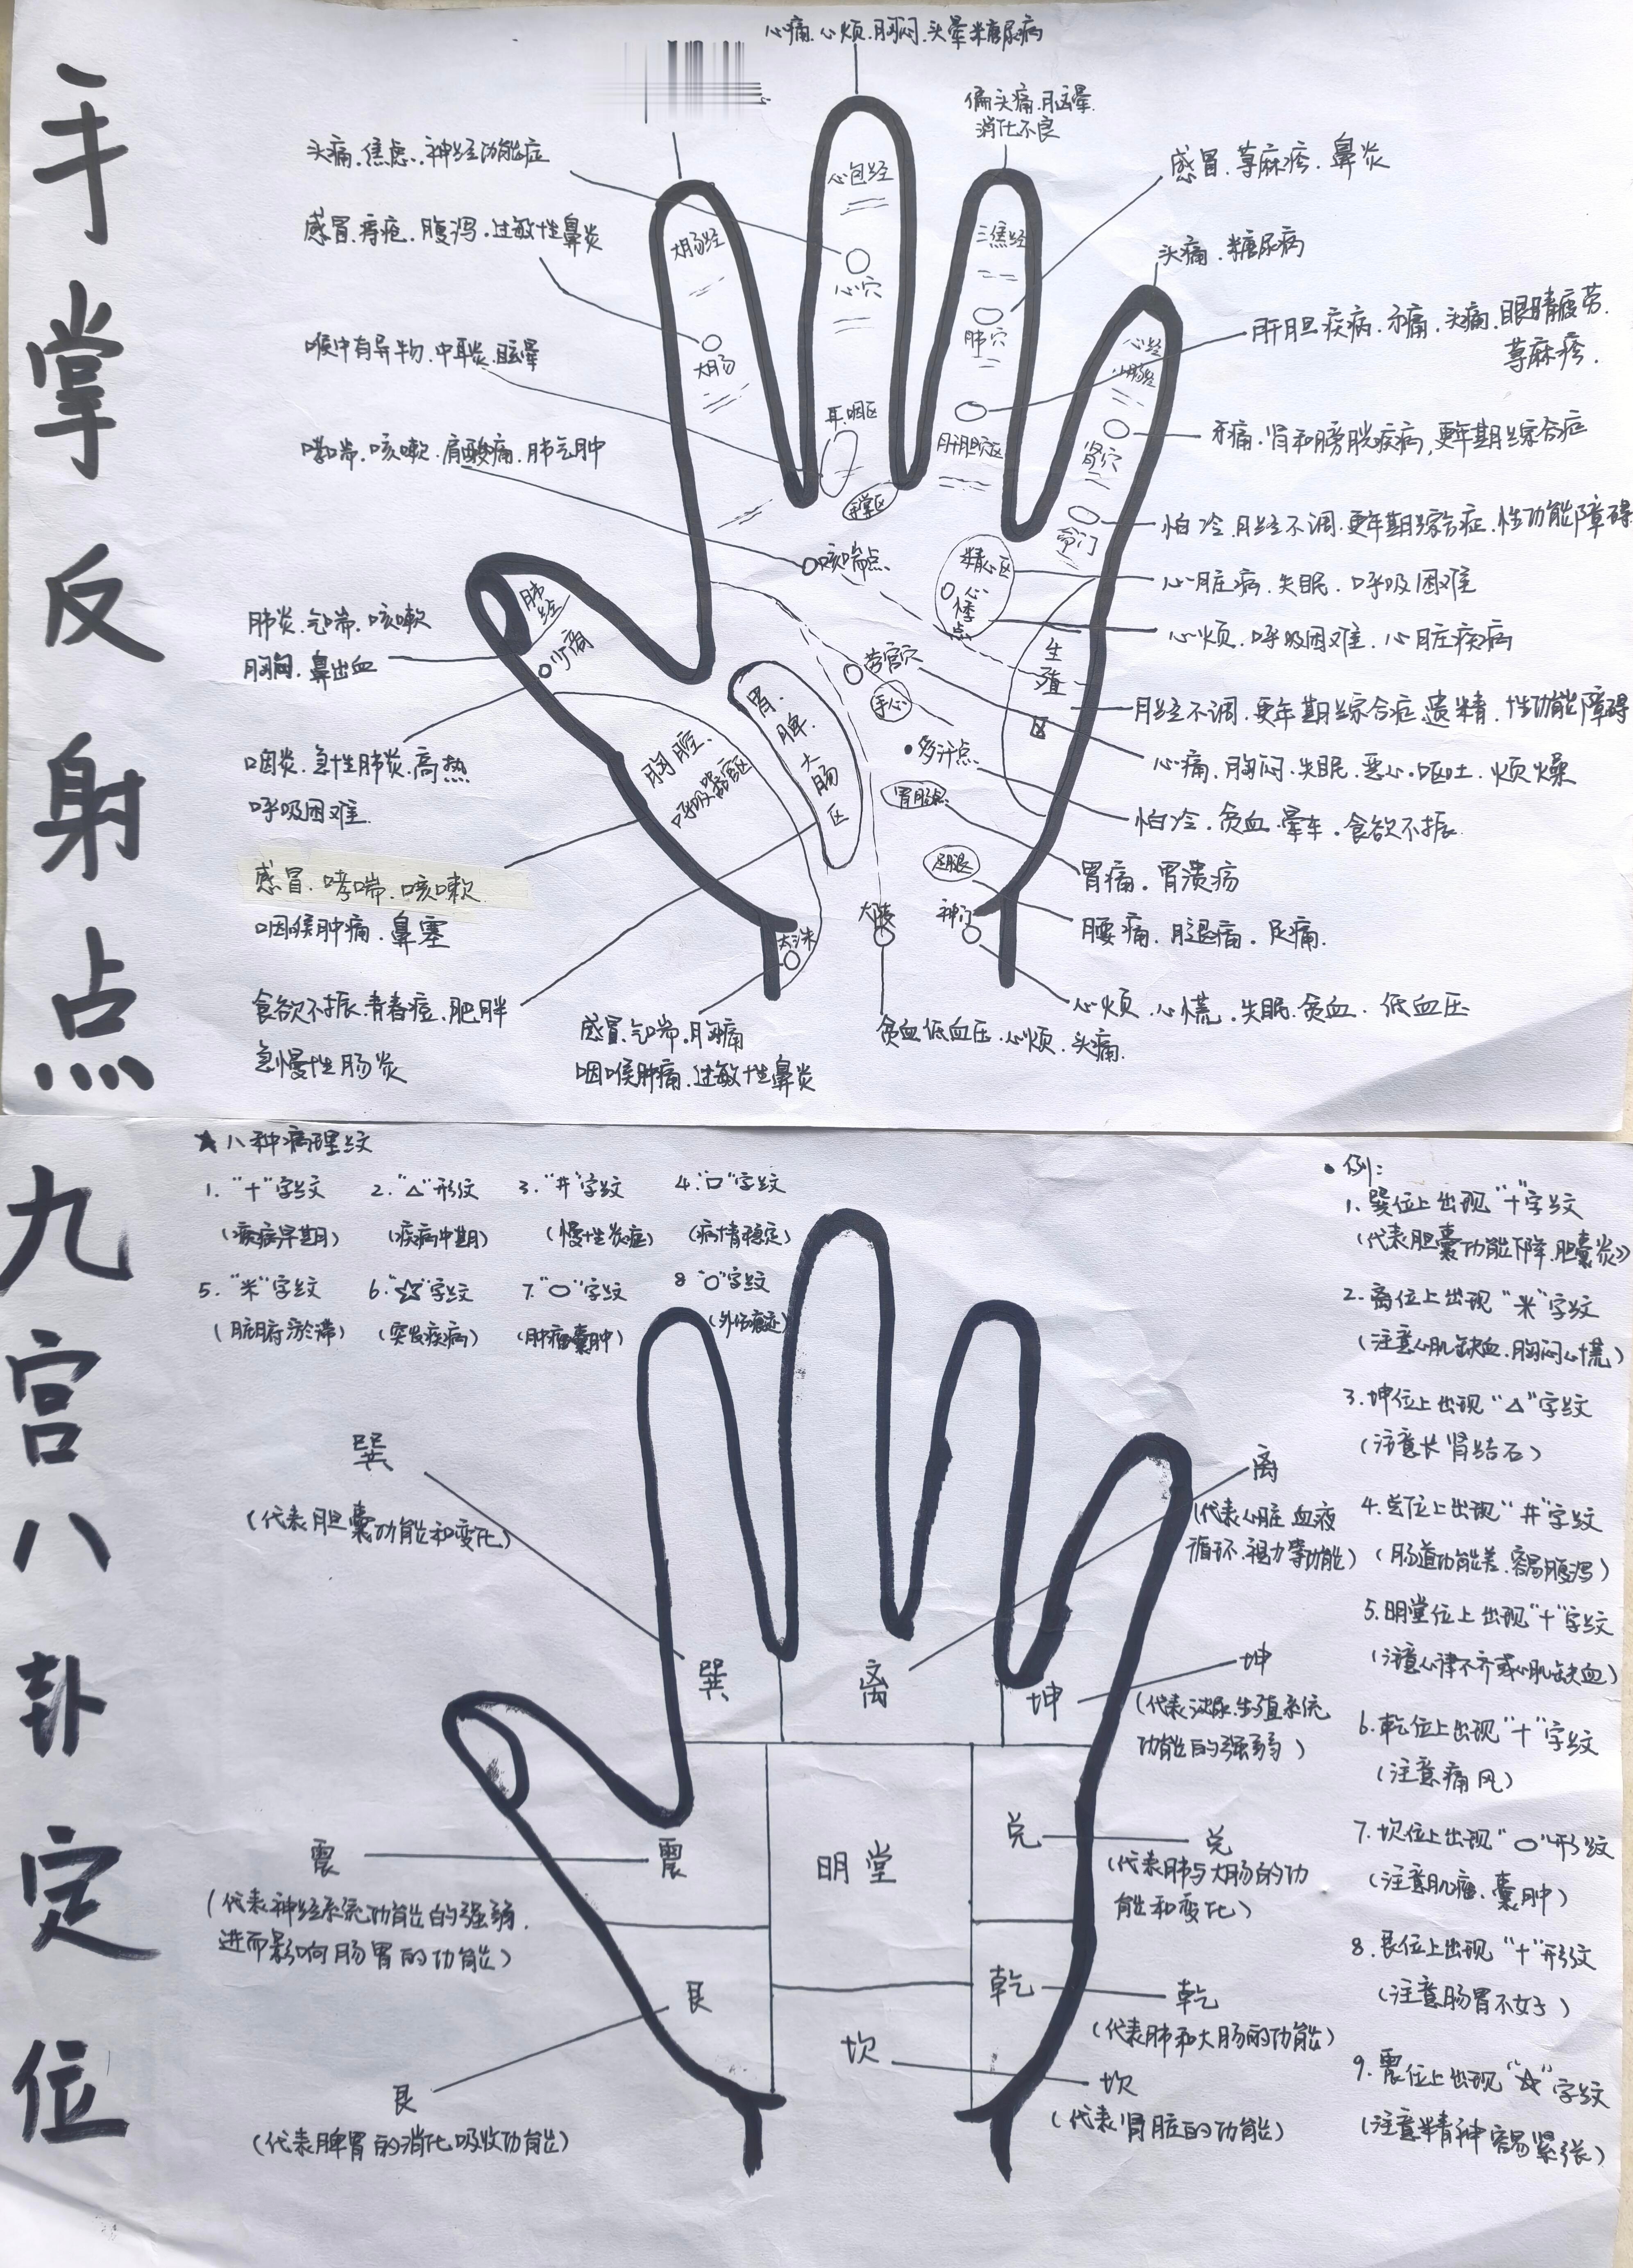 手掌反射点
心痛.心烦.胸闷.头晕糖尿病
偏头痛.脑晕.
消化不良
头痛.焦虑.神经功能症
感冒.痔疮.腹泻.过敏性鼻炎
喉中有异物.中耳炎.眩晕
哮喘.咳嗽.肩酸痛.肺气肿
肺炎.气喘.咳嗽
鼻出血
咽炎.急性肺炎.高热
呼吸困难.
感冒.哮喘.咳嗽
咽喉肿痛.鼻塞
食欲不振.青春痘.肥胖
急慢性肠炎
感冒.气喘.胸痛
咽喉肿痛.过敏性鼻炎
贫血低血压.心烦.头痛.
大肠经
大肠
心包经
心穴
耳咽区
手掌区
三焦经
肺穴
肝胆穴区
心经
小肠经
肾穴
命门
咳喘点
精心区
心悸点
生殖区
肺经
少商
胸腔.
呼吸器官区
胃.脾.大肠区
劳宫穴
手心
多汗点
胃肠点
足腿
大陵
神门
太渊
感冒.荨麻疹.鼻炎
头痛.糖尿病
肝胆疾病.牙痛.头痛.眼睛疲劳.
荨麻疹.
牙痛.肾和膀胱疾病,更年期综合症
怕冷.月经不调.更年期综合症.性功能障碍
心脏病.失眠.呼吸困难
心烦.呼吸困难.心脏疾病
月经不调.更年期综合症.遗精.性功能障碍
心痛.胸闷.失眠.恶心.呕吐.烦燥
怕冷.贫血.晕车.食欲不振.
胃痛.胃溃疡
腰痛.腿痛.足痛.
心烦.心慌.失眠.贫血.低血压
九宫八卦定位
★八种病理纹
1."十"字纹 2."△"形纹 3."井"字纹 4."口"字纹
(疾病早期) (疾病中期) (慢性炎症) (病情稳定)
5."米"字纹 6."☆"字纹 7."○"字纹 8"○"字纹
(脏腑淤滞) (突发疾病) (肿瘤囊肿) (外伤痕迹)
巽
(代表胆囊功能和变化)
震
(代表神经系统功能的强弱.
进而影响肠胃的功能)
艮
(代表脾胃的消化吸收功能)
巽
离
坤
震
明堂
兑
艮
坎
乾
离
(代表心脏 血液
循环.视力等功能)
坤
(代表泌尿.生殖系统
功能的强弱)
兑
(代表肺与大肠的功
能和变化)
乾
(代表肺和大肠的功能)
坎
(代表肾脏的功能)
•例:
1.巽位上出现"十"字纹
(代表胆囊功能下降.胆囊炎)
2.离位上出现"米"字纹
(注意心肌缺血.胸闷心慌)
3.坤位上出现"△"字纹
(注意长肾结石)
4.兑位上出现"井"字纹
(肠道功能差.容易腹泻)
5.明堂位上出现"十"字纹
(注意心律不齐或心肌缺血)
6.乾位上出现"十"字纹
(注意痛风)
7.坎位上出现"○"形纹
(注意肌瘤、囊肿)
8.艮位上出现"十"形纹
(注意肠胃不好)
9.震位上出现"☆"字纹
(注意精神容易紧张)